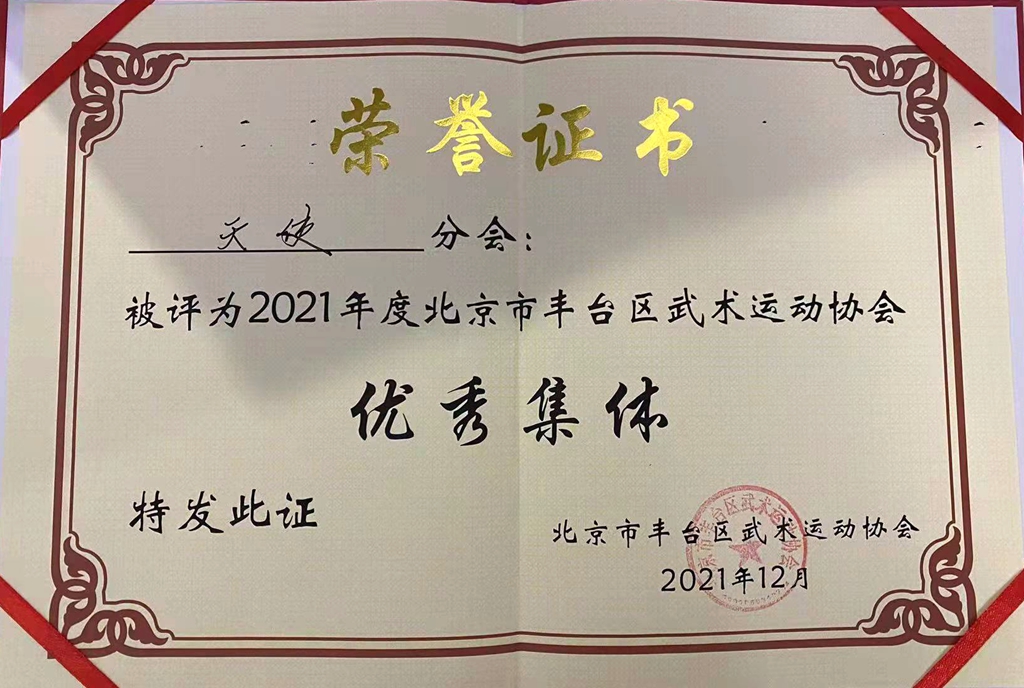 荣誉证书
天使分会：
被评为2021年度北京市丰台区武术运动协会
优秀集体
特发此证
北京市丰台区武术运动协会
2021年12月